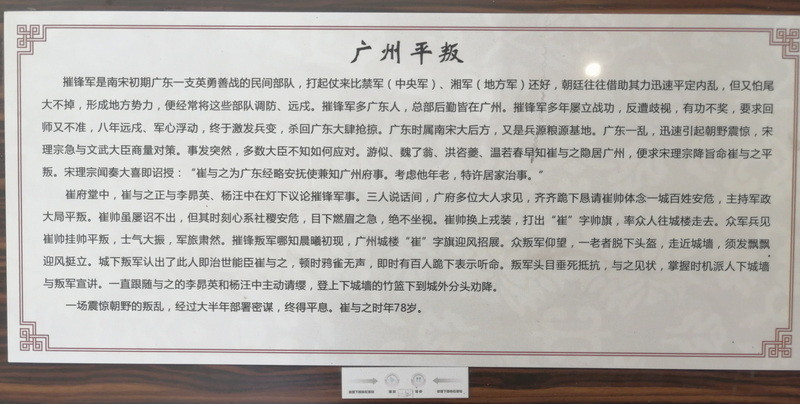 广州平叛
摧锋军是南宋初期广东一支英勇善战的民间部队，打起仗来比禁军（中央军）、湘军（地方军）还好，朝廷往往借助其力迅速平定内乱，但又怕尾
大不掉，形成地方势力，便经常将这些部队调防、远戍。摧锋军多广东人，总部后勤皆在广州。摧锋军多年屡立战功，反遭歧视，有功不奖，要求回
师又不准，八年远戍、军心浮动，终于激发兵变，杀回广东大肆抢掠。广东时属南宋大后方，又是兵源粮源基地。广东一乱，迅速引起朝野震惊，宋
理宗急与文武大臣商量对策。事发突然，多数大臣不知如何应对。游似、魏了翁、洪咨夔、温若春早知崔与之隐居广州，便求宋理宗降旨命崔与之平
叛。宋理宗闻奏大喜即诏授：“崔与之为广东经略安抚使兼知广州府事。考虑他年老，特许居家治事。”
崔府堂中，崔与之正与李昴英、杨汪中在灯下议论摧锋军事。三人说话间，广府多位大人求见，齐齐跪下恳请崔帅体念一城百姓安危，主持军政
大局平叛。崔帅虽屡诏不出，但其时刻心系社稷安危，目下燃眉之急，绝不坐视。崔帅换上戎装，打出“崔”字帅旗，率众人往城楼走去。众军兵见
崔帅挂帅平叛，士气大振，军旅肃然。摧锋叛军哪知晨曦初现，广州城楼“崔”字旗迎风招展。众叛军仰望，一老者脱下头盔，走近城墙，须发飘飘
迎风挺立。城下叛军认出了此人即治世能臣崔与之，顿时鸦雀无声，即时有百人跪下表示听命。叛军头目垂死抵抗，与之见状，掌握时机派人下城墙
与叛军宣讲。一直跟随与之的李昴英和杨汪中主动请缨，登上下城墙的竹篮下到城外分头劝降。
一场震惊朝野的叛乱，经过大半年部署密谋，终得平息。崔与之时年78岁。